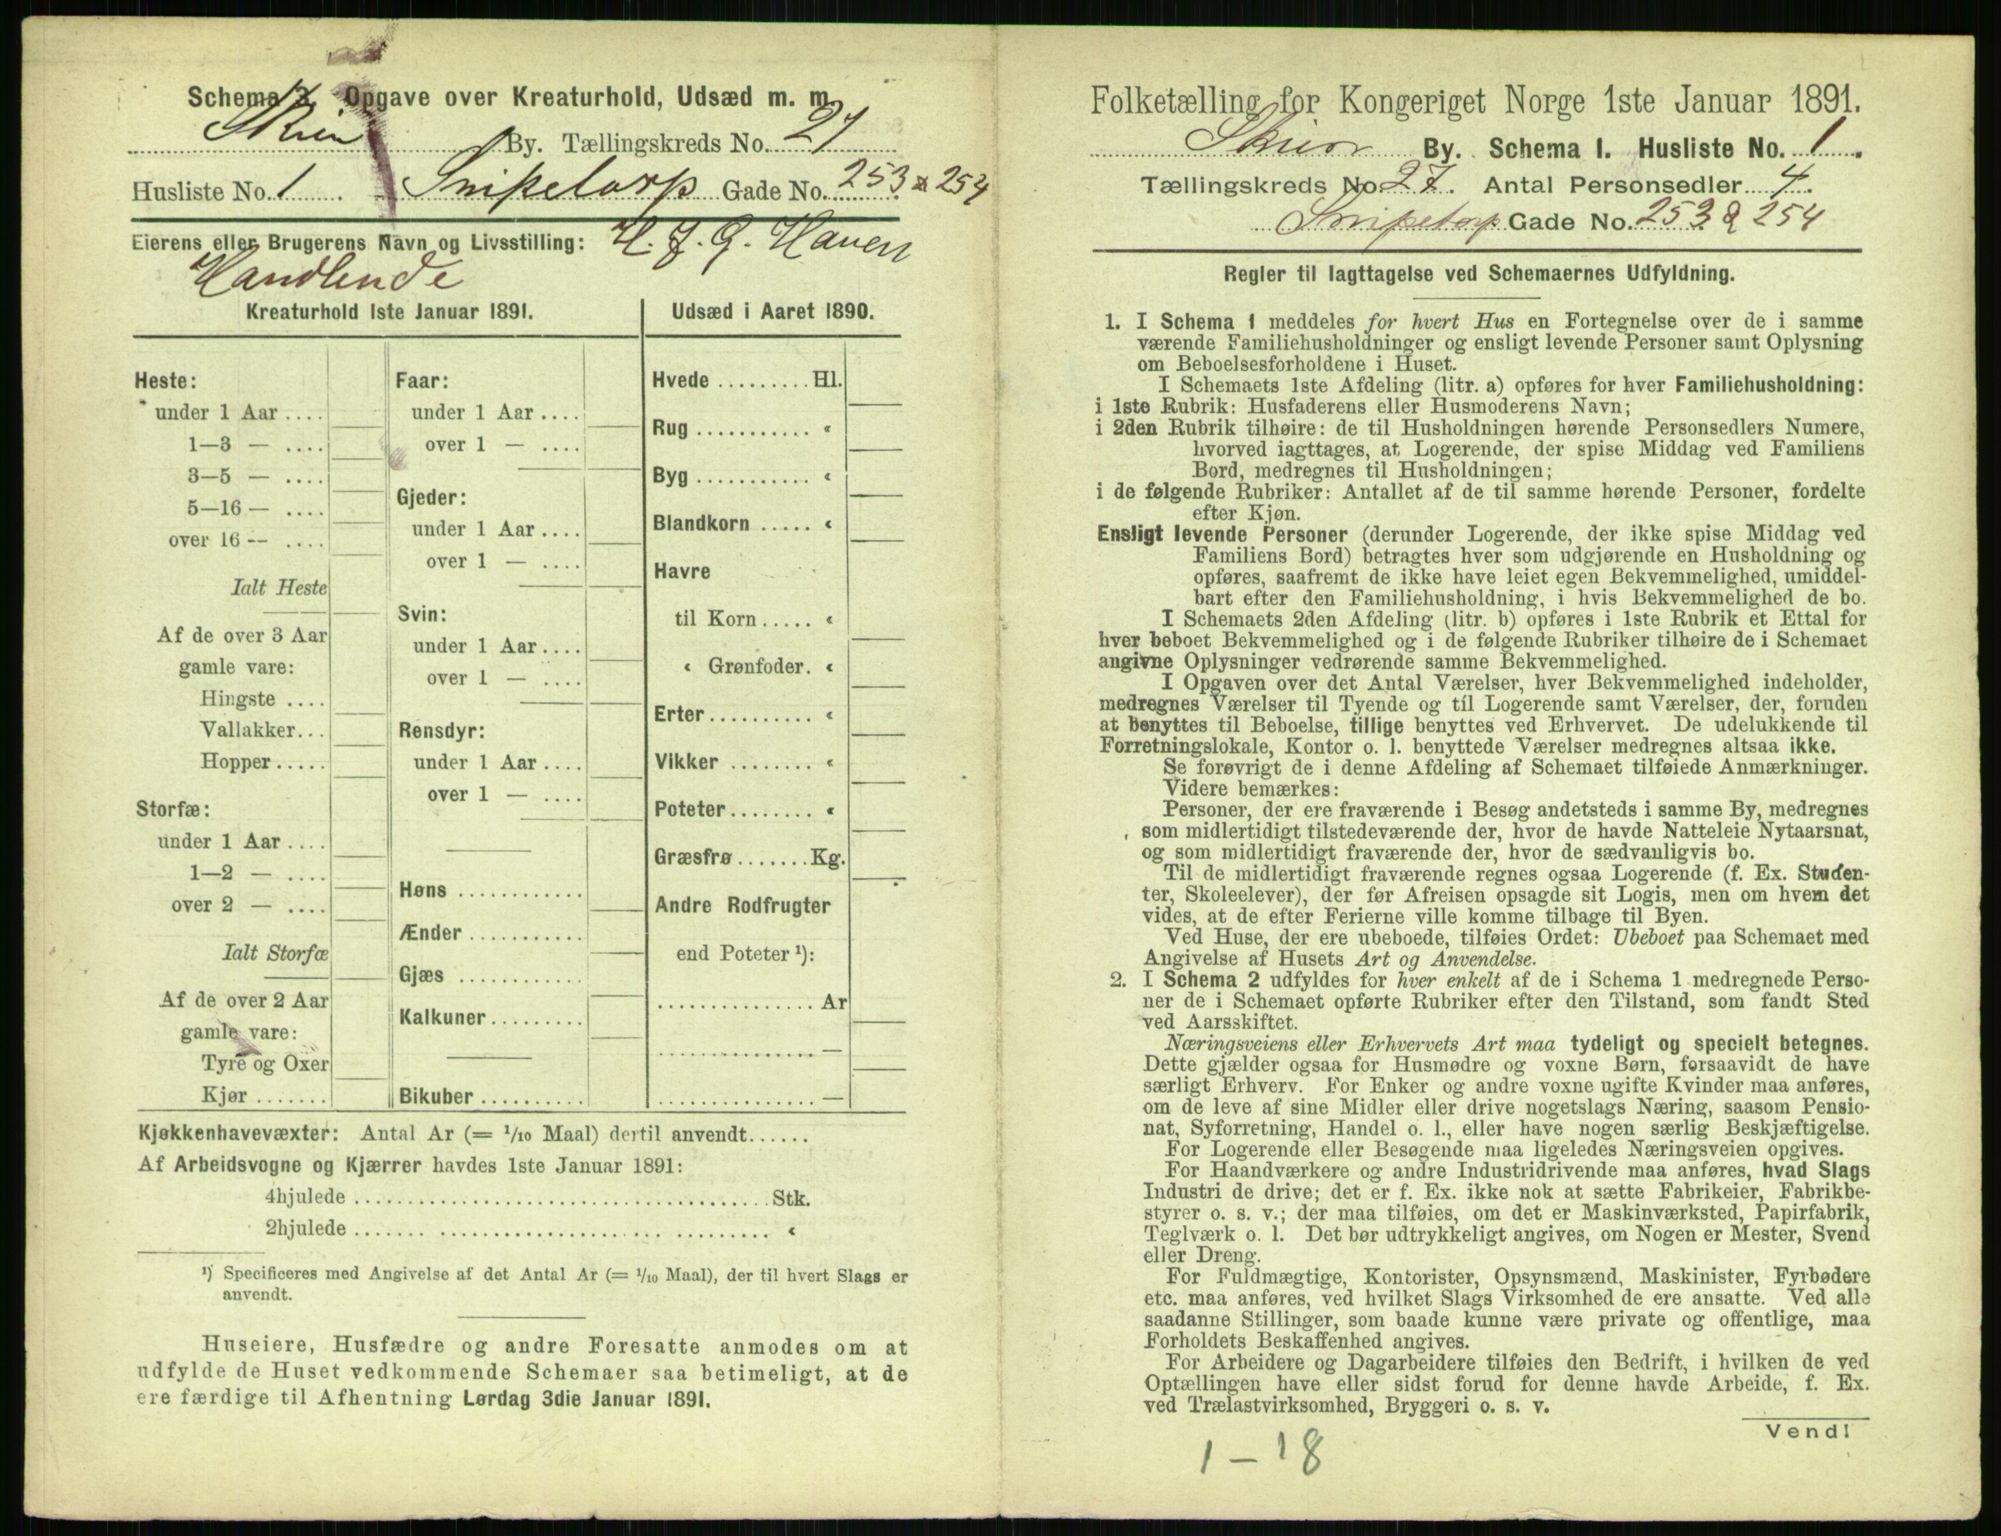 Schema 3. Opgave over Kreaturhold, Udsæd m. m.
Skien By. Tællingskreds No. 27
Husliste No. 1. Snipetorp Gade No. 253 & 254
Eierens eller Brugerens Navn og Livsstilling: H. J. G. Hauen
Handlende
Kreaturhold 1ste Januar 1891.
Heste:
under 1 Aar ....
1—3 — ....
3—5 — ....
5—16 — ....
over 16 — ....
Ialt Heste
Af de over 3 Aar
gamle vare:
Hingste ....
Vallakker...
Hopper .....
Storfæ:
under 1 Aar ....
1—2 — ....
over 2 — ....
Ialt Storfæ
Af de over 2 Aar
gamle vare:
Tyre og Oxer
Kjør .......
Faar:
under 1 Aar ....
over 1 — ....
Gjeder:
under 1 Aar ....
over 1 — ....
Svin:
under 1 Aar ....
over 1 — ....
Rensdyr:
under 1 Aar ....
over 1 — ....
Høns ............
Ænder ...........
Gjæs ............
Kalkuner .........
Bikuber ..........
Udsæd i Aaret 1890.
Hvede ......... Hl.
Rug ........... «
Byg ........... «
Blandkorn ..... «
Havre
til Korn ..... «
« Grønfoder. «
Erter .......... «
Vikker ........ «
Poteter ........ «
Græsfrø ....... Kg.
Andre Rodfrugter
end Poteter ¹):
............... Ar
............... —
............... —
Kjøkkenhavevæxter: Antal Ar (= 1/10 Maal) dertil anvendt......
Af Arbeidsvogne og Kjærrer havdes 1ste Januar 1891:
4hjulede ........................................ Stk.
2hjulede ........................................ «
¹) Specificeres med Angivelse af det Antal Ar (= 1/10 Maal), der til hvert Slags er
anvendt.
Huseiere, Husfædre og andre Foresatte anmodes om at
udfylde de Huset vedkommende Schemaer saa betimeligt, at de
ere færdige til Afhentning Lørdag 3die Januar 1891.
Folketælling for Kongeriget Norge 1ste Januar 1891.
Skien By. Schema I. Husliste No. 1.
Tællingskreds No. 27. Antal Personsedler 4.
Snipetorp Gade No. 253 & 254
Regler til Iagttagelse ved Schemaernes Udfyldning.
1. I Schema 1 meddeles for hvert Hus en Fortegnelse over de i samme
værende Familiehusholdninger og ensligt levende Personer samt Oplysning
om Beboelsesforholdene i Huset.
I Schemaets 1ste Afdeling (litr. a) opføres for hver Familiehusholdning:
i 1ste Rubrik: Husfaderens eller Husmoderens Navn;
i 2den Rubrik tilhøire: de til Husholdningen hørende Personsedlers Numere,
hvorved iagttages, at Logerende, der spise Middag ved Familiens
Bord, medregnes til Husholdningen;
i de følgende Rubriker: Antallet af de til samme hørende Personer, fordelte
efter Kjøn.
Ensligt levende Personer (derunder Logerende, der ikke spise Middag ved
Familiens Bord) betragtes hver som udgjørende en Husholdning og
opføres, saafremt de ikke have leiet egen Bekvemmelighed, umiddel-
bart efter den Familiehusholdning, i hvis Bekvemmelighed de bo.
I Schemaets 2den Afdeling (litr. b) opføres i 1ste Rubrik et Ettal for
hver beboet Bekvemmelighed og i de følgende Rubriker tilhøire de i Schemaet
angivne Oplysninger vedrørende samme Bekvemmelighed.
I Opgaven over det Antal Værelser, hver Bekvemmelighed indeholder,
medregnes Værelser til Tyende og til Logerende samt Værelser, der, foruden
at benyttes til Beboelse, tillige benyttes ved Erhvervet. De udelukkende til
Forretningslokale, Kontor o. l. benyttede Værelser medregnes altsaa ikke.
Se forøvrigt de i denne Afdeling af Schemaet tilføiede Anmærkninger.
Videre bemærkes:
Personer, der ere fraværende i Besøg andetsteds i samme By, medregnes
som midlertidigt tilstedeværende der, hvor de havde Natteleie Nytaarsnat,
og som midlertidigt fraværende der, hvor de sædvanligvis bo.
Til de midlertidigt fraværende regnes ogsaa Logerende (f. Ex. Studen-
ter, Skoleelever), der før Afreisen opsagde sit Logis, men om hvem det
vides, at de efter Ferierne ville komme tilbage til Byen.
Ved Huse, der ere ubeboede, tilføies Ordet: Ubeboet paa Schemaet med
Angivelse af Husets Art og Anvendelse.
2. I Schema 2 udfyldes for hver enkelt af de i Schema 1 medregnede Perso-
ner de i Schemaet opførte Rubriker efter den Tilstand, som fandt Sted
ved Aarsskiftet.
Næringsveiens eller Erhvervets Art maa tydeligt og specielt betegnes.
Dette gjælder ogsaa for Husmødre og voxne Børn, forsaavidt de have
særligt Erhverv. For Enker og andre voxne ugifte Kvinder maa anføres,
om de leve af sine Midler eller drive nogetslags Næring, saasom Pensio-
nat, Syforretning, Handel o. l., eller have nogen særlig Beskjæftigelse.
For Logerende eller Besøgende maa ligeledes Næringsveien opgives.
For Haandværkere og andre Industridrivende maa anføres, hvad Slags
Industri de drive; det er f. Ex. ikke nok at sætte Fabrikeier, Fabrikbe-
styrer o. s. v.; der maa tilføies, om det er Maskinværksted, Papirfabrik,
Teglværk o. l. Det bør udtrykkeligt angives, om Nogen er Mester, Svend
eller Dreng.
For Fuldmægtige, Kontorister, Opsynsmænd, Maskinister, Fyrbødere
etc. maa anføres, ved hvilket Slags Virksomhed de ere ansatte. Ved alle
saadanne Stillinger, som baade kunne være private og offentlige, maa
Forholdets Beskaffenhed angives.
For Arbeidere og Dagarbeidere tilføies den Bedrift, i hvilken de ved
Optællingen have eller sidst forud for denne havde Arbeide, f. Ex.
ved Trælastvirksomhed, Bryggeri o. s. v.
Vend!
1 – 18